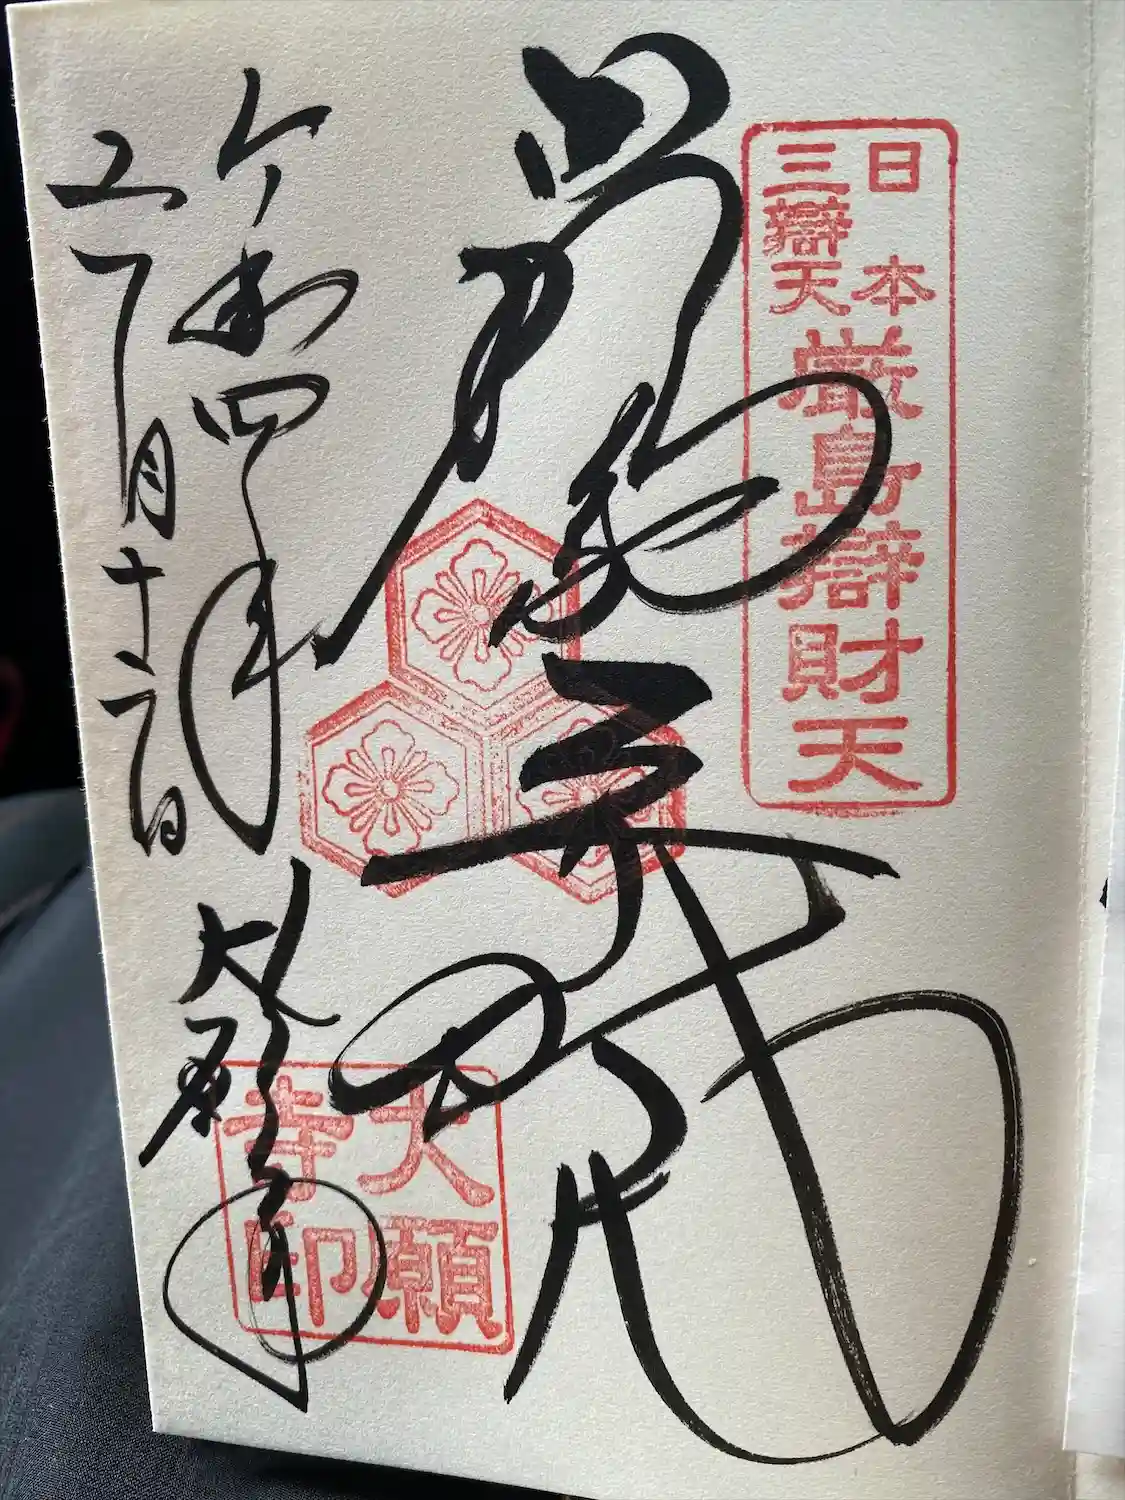 日本
三辯天
厳島辯財天
厳島弁財天
令和四年
五月十六日
大願寺
大願寺印